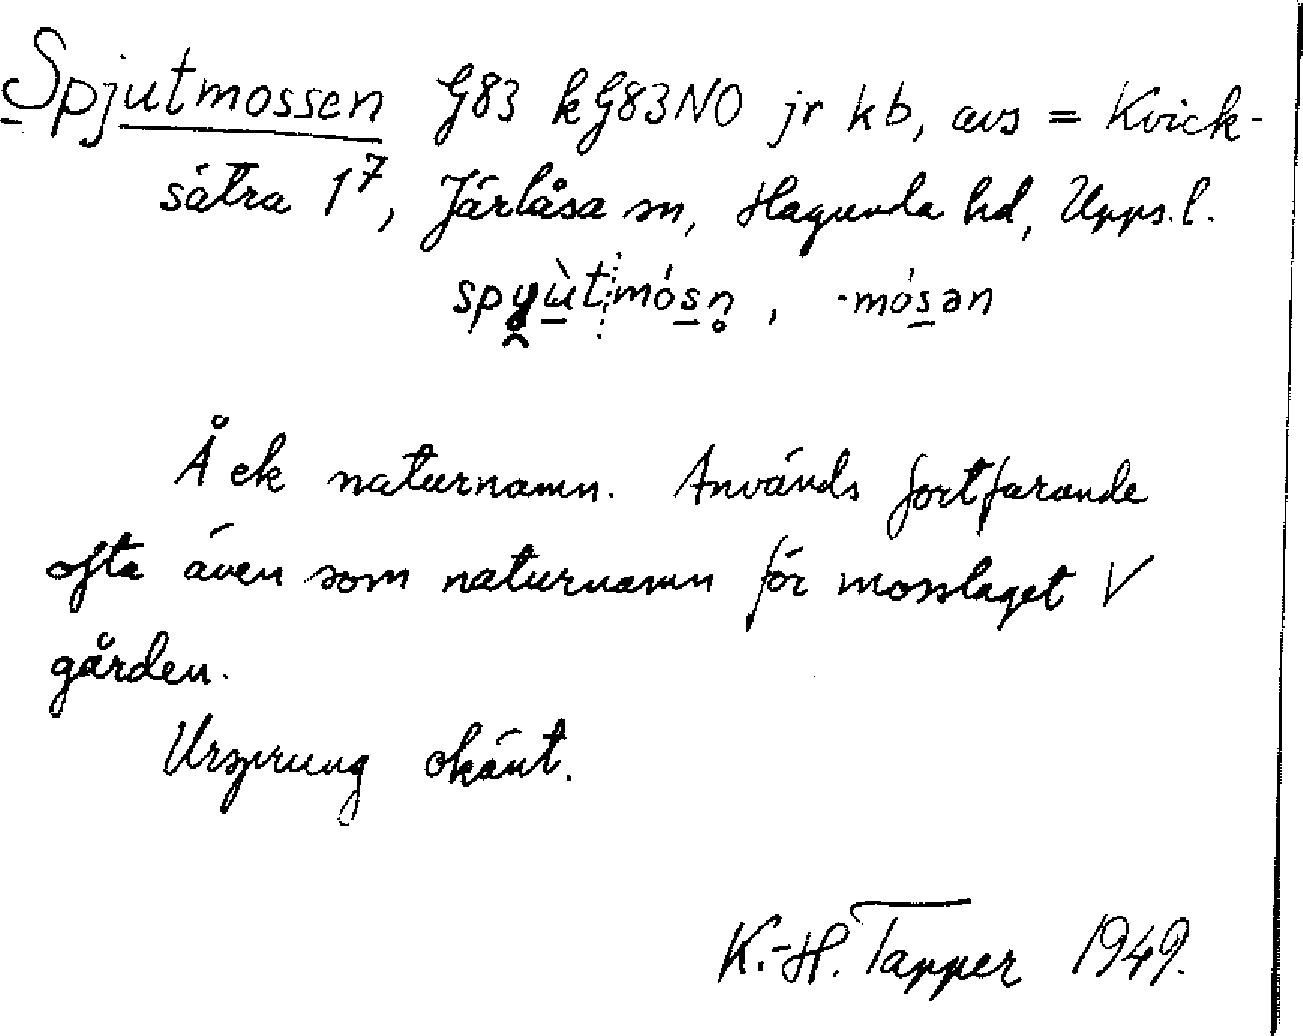 Spjutmossen G83 kG83NO jr kb, avs = Kvick-
sätra 1⁷, Järlåsa sn, Hagunda hd, Upps.l.
spyùtmósn̥, -mósən
Å ek naturnamn. Används fortfarande
ofta även som naturnamn för mosslaget V
gården.
Ursprung okänt.
K.-H. Tapper 1949.